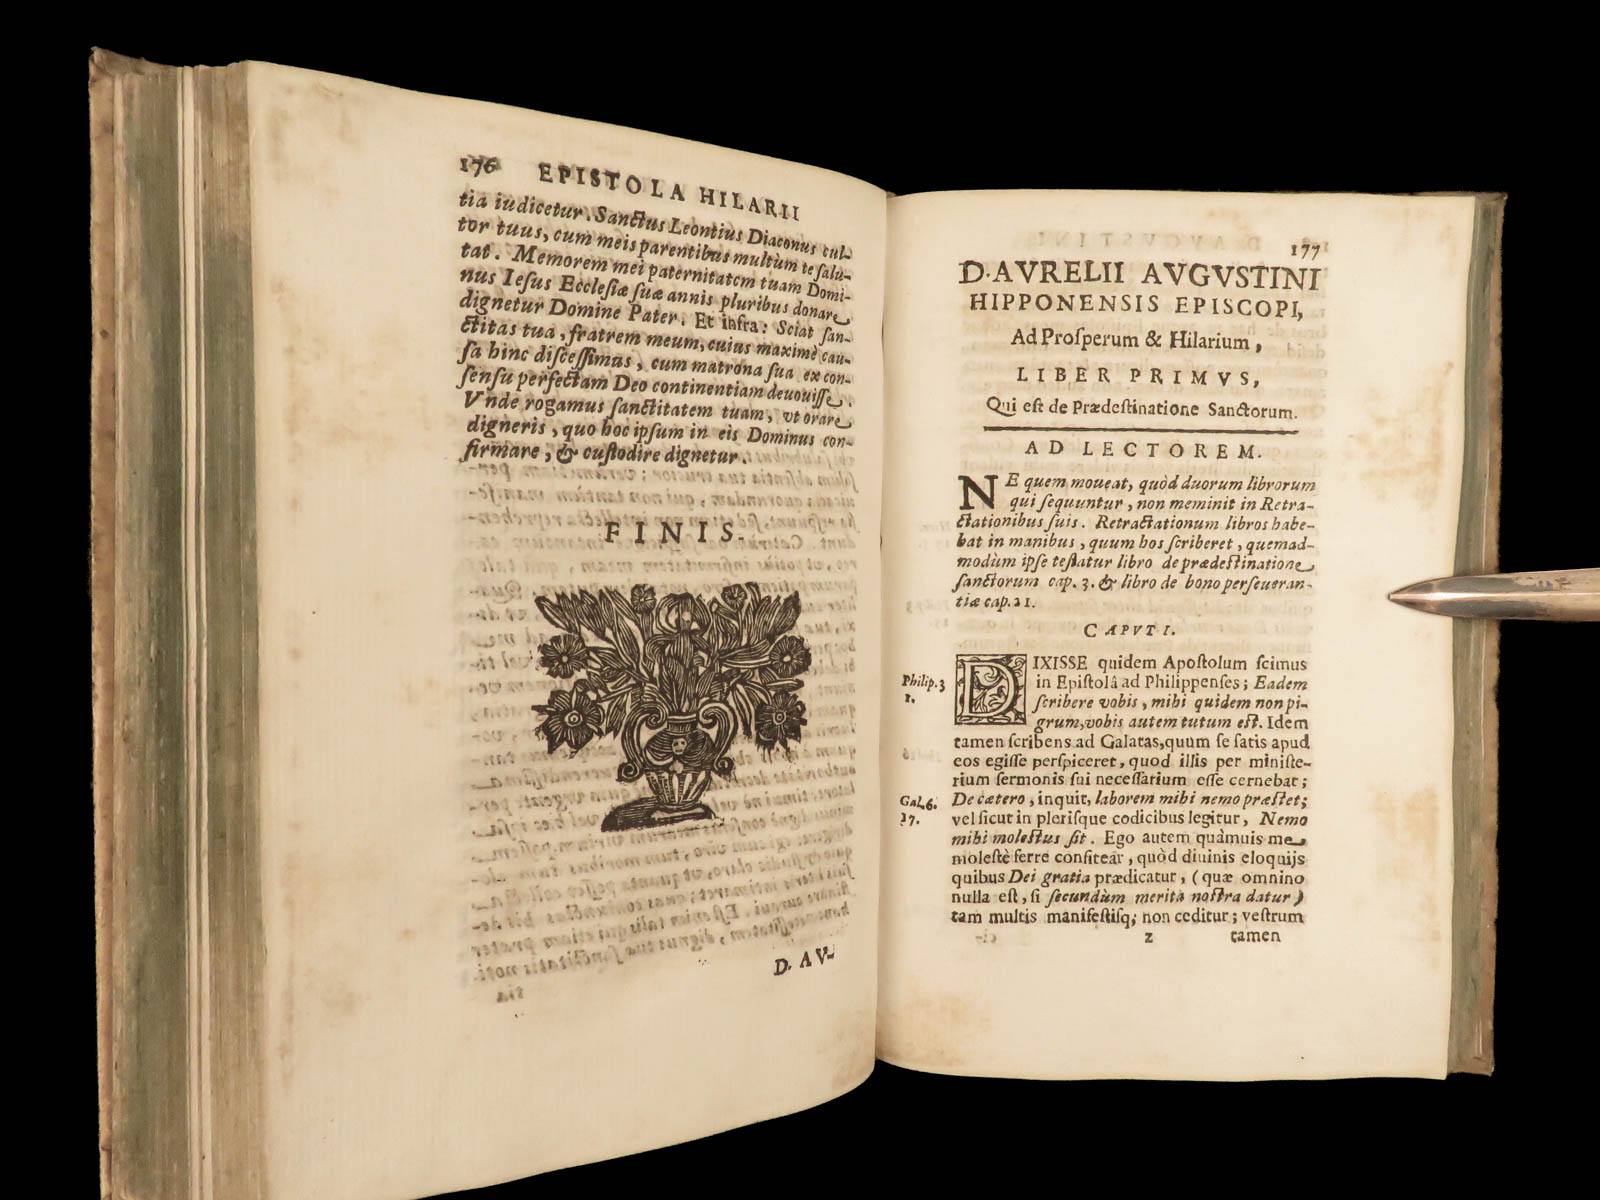 176 EPISTOLA HILARII
tia iudicetur. Sanctus Leontius Diaconus cul-
tor tuus, cum meis parentibus multùm te salu-
tat. Memorem mei paternitatem tuam Domi-
nus Iesus Ecclesiæ suæ annis pluribus donare
dignetur Domine Pater. Et infra: Sciat san-
ctitas tua, fratrem meum, cuius maximè cau-
sa hinc discessimus, cum matrona sua ex con-
sensu perfectam Deo continentiam deuouisse.
Vnde rogamus sanctitatem tuam, vt orare
digneris, quo hoc ipsum in eis Dominus con-
firmare, & custodire dignetur.
FINIS.
D. AV-
177
D. AVRELII AVGVSTINI
HIPPONENSIS EPISCOPI,
Ad Prosperum & Hilarium,
LIBER PRIMVS,
Qui est de Prædestinatione Sanctorum.
AD LECTOREM.
NE quem moueat, quòd duorum librorum
qui sequuntur, non meminit in Retra-
ctationibus suis. Retractationum libros habe-
bat in manibus, quum hos scriberet, quemad-
modùm ipse testatur libro de prædestinatione
sanctorum cap. 3. & libro de bono perseueran-
tiæ cap. 21.
CAPVT I.
DIXISSE quidem Apostolum scimus
Philip. 3 in Epistolâ ad Philippenses; Eadem
1. scribere vobis, mihi quidem non pi-
grum, vobis autem tutum est. Idem
tamen scribens ad Galatas, quum se satis apud
eos egisse perspiceret, quod illis per ministe-
rium sermonis sui necessarium esse cernebat;
Gal. 6. De cætero, inquit, laborem mihi nemo præstet;
17. vel sicut in plerisque codicibus legitur, Nemo
mihi molestus sit. Ego autem quàmuis me
molestè ferre confitear, quòd diuinis eloquijs
quibus Dei gratia prædicatur, (quæ omnino
nulla est, si secundùm merita nostra datur)
tam multis manifestisq; non ceditur; vestrum
z tamen